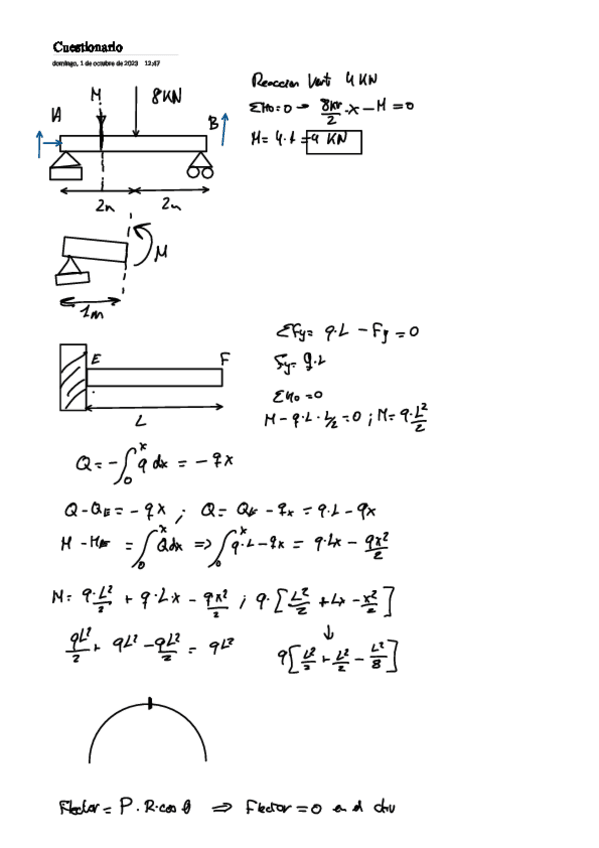 Cuestionario
domingo, 1 de octubre de 2023 12:47
Reaccion Vert 4 KN
M 8KN
ΣM0=0 → 8KN/2 · x - M = 0
A B
M = 4·1 = 4 KN
2m 2m
M
1m
ΣFy = q·L - Fy = 0
E F
Fy = q·L
ΣM0 = 0
L
M - q·L·L/2 = 0 ; M = q·L²/2
Q = -∫₀ˣ q dx = -qx
Q - QE = -qx ; Q = QE - qx = q·L - qx
M - ME = ∫₀ˣ Qdx => ∫₀ˣ q·L - qx = q·Lx - qx²/2
M = q·L²/2 + q·Lx - qx²/2 ; q·[L²/2 + Lx - x²/2]
qL²/2 + qL² - qL²/2 = qL²
q[L²/2 + L²/2 - L²/8]
Flector = P·R·cos θ => Flector = 0 en el